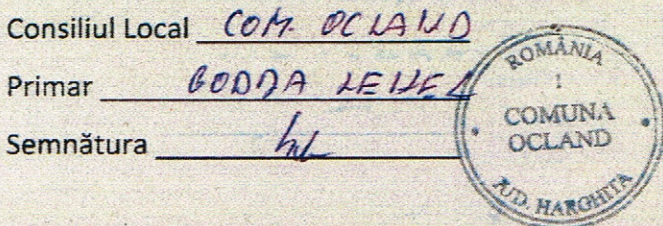 Consiliul Local COM. OCLAND
Primar
Semnătura
ROMÂNIA
1
COMUNA
OCLAND
JUD. HARGHITA